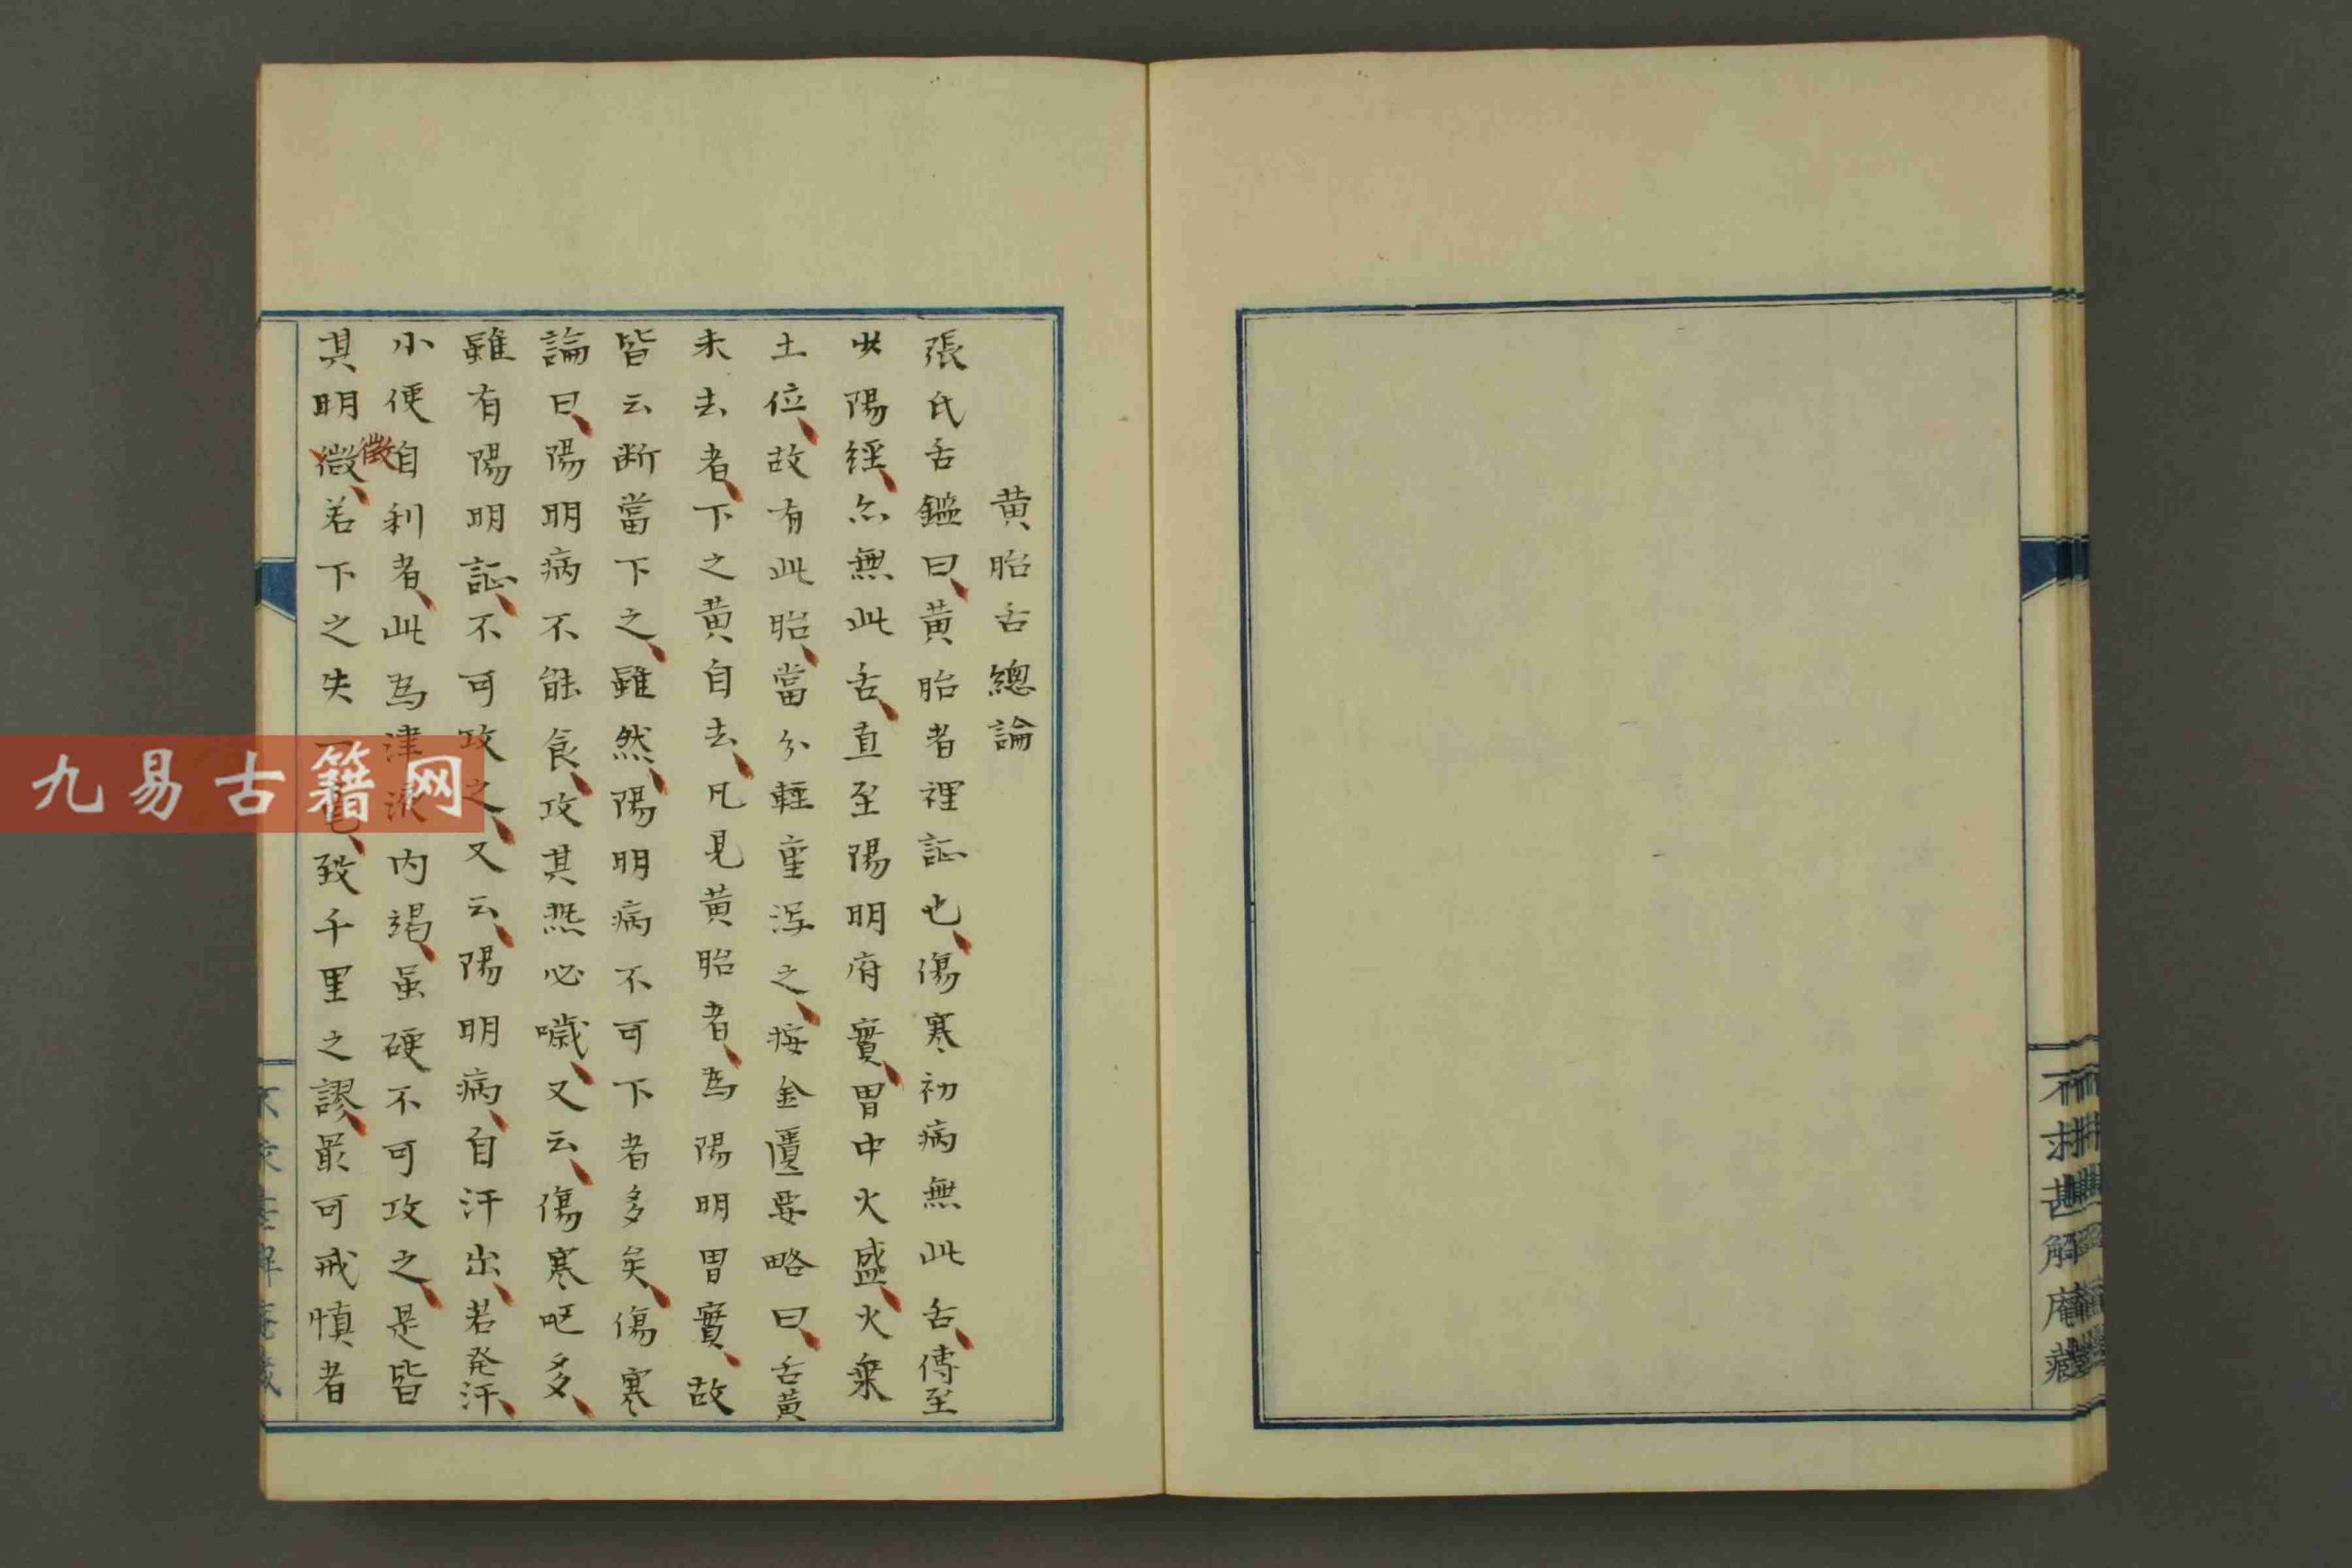 不求甚解庵藏
黄胎舌總論
張氏舌鑑曰黄胎者裡証也傷寒初病無此舌傳至
少陽経亦無此舌直至陽明府實胃中火盛火乗
土位故有此胎當分軽重泻之痿金匱要略曰舌黄
未去者下之黄自去凡見黄胎者為陽明胃實故
皆云断當下之雖然陽明病不可下者多矣傷寒
論曰陽明病不能食攻其热必噦又云傷寒呕多
雖有陽明証不可攻之又云陽明病自汗出若発汗
小便自利者此為津液内竭虽硬不可攻之是皆
其明微若下之失一 致千里之謬最可戒慎者
徴
九易古籍网